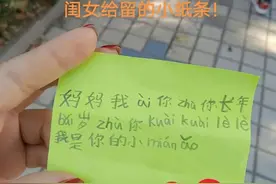 闺女给留的小纸条!
妈妈我ài你zhù你长年
bǎi岁zhù你kuài kuài lè lè
我是你的小mián ǎo